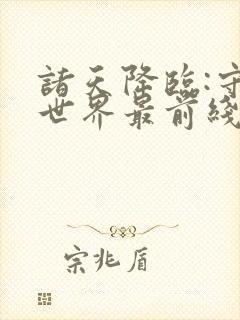 諸天降臨:守
世界最前綫
宗兆盾